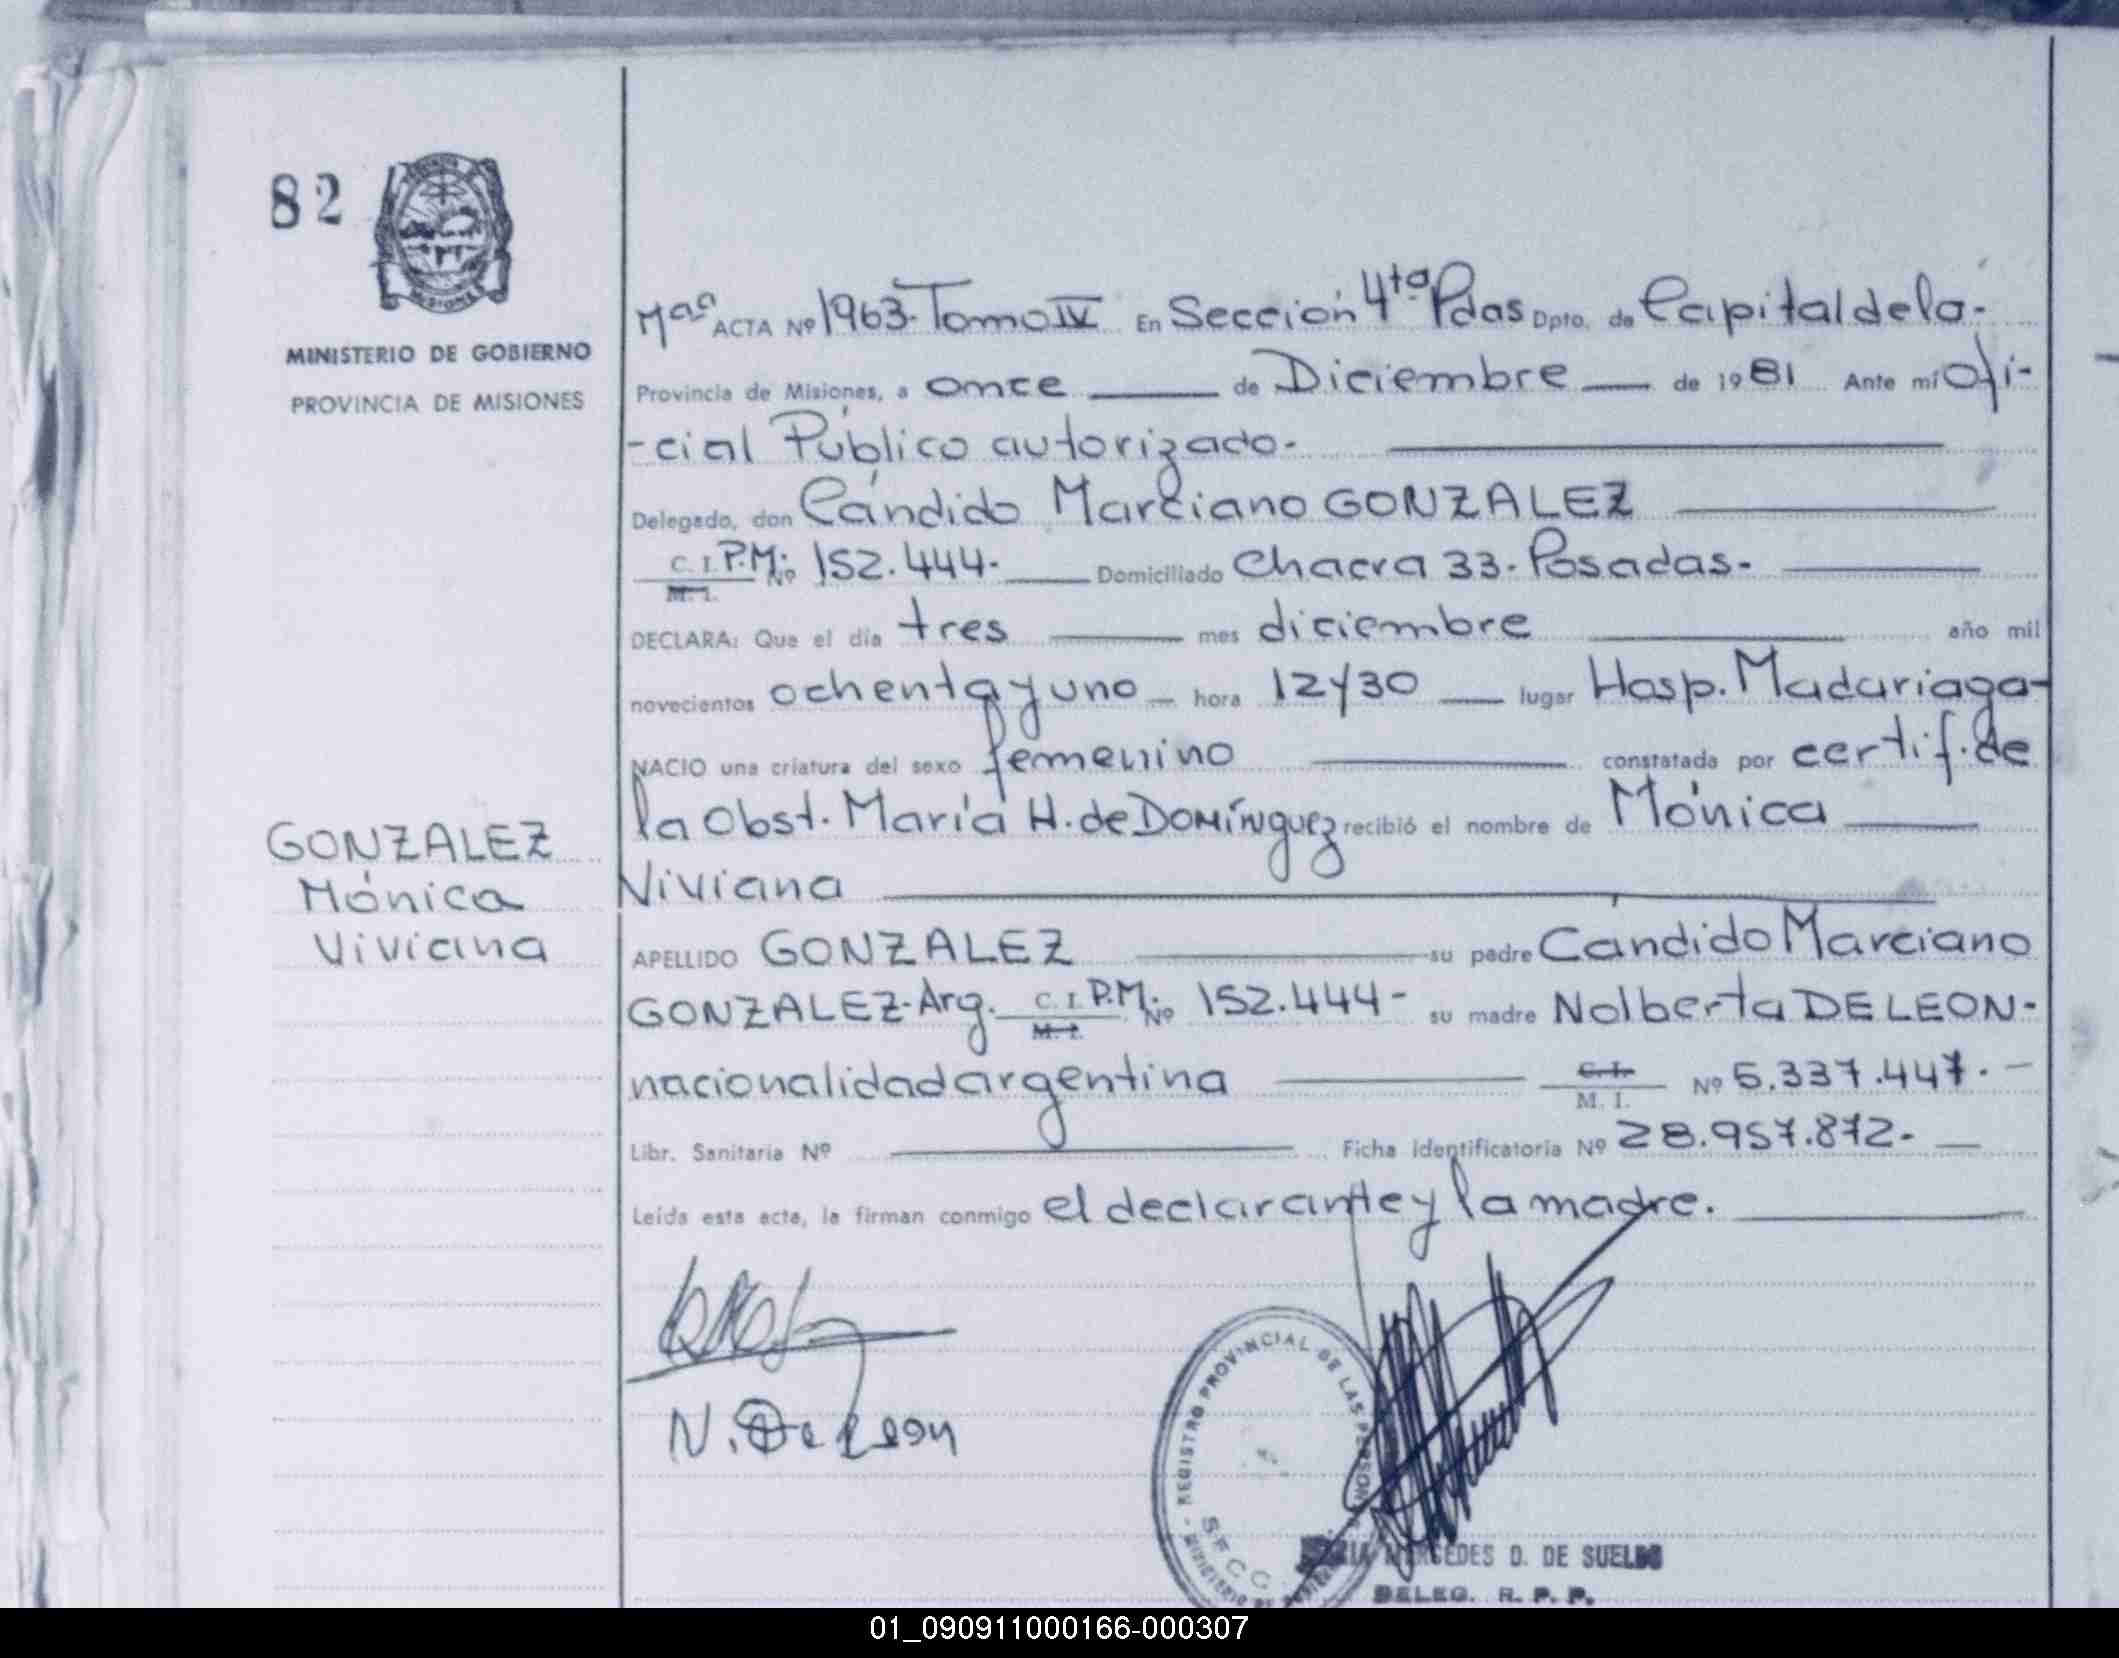 82
MINISTERIO DE GOBIERNO
PROVINCIA DE MISIONES
GONZALEZ
Mónica
Viviana
ACTA Nº 1963. Tomo IV En Sección 4ta Pdas Dpto. de Capital de la-
Provincia de Misiones, a once de Diciembre de 1981 Ante mí Ofi-
-cial Público autorizado-
Delegado, don Cándido Marciano GONZALEZ
C. I. P.M. Nº 152.444- Domiciliado Chacra 33- Posadas-
M. I.
DECLARA: Que el día tres mes diciembre año mil
novecientos ochenta y uno hora 12y30 lugar Hosp. Madariaga-
NACIO una criatura del sexo femenino constatada por certif. de
la Obst. María H. de DOMÍNguez recibió el nombre de Mónica
Viviana
APELLIDO GONZALEZ su padre Cándido Marciano
GONZALEZ-Arg. C. I. P.M. Nº 152.444- su madre Nolberta DE LEON-
M. I.
nacionalidad argentina C. I. Nº 6.337.447.-
M. I.
Libr. Sanitaria Nº Ficha Identificatoria Nº 28.957.872-
Leída esta acta, la firman conmigo el declarante y la madre.
N. De Leon
REGISTRO PROVINCIAL DE LAS PERSONAS
MERCEDES D. DE SUELDO
DELEG. R. P. P.
01_090911000166-000307